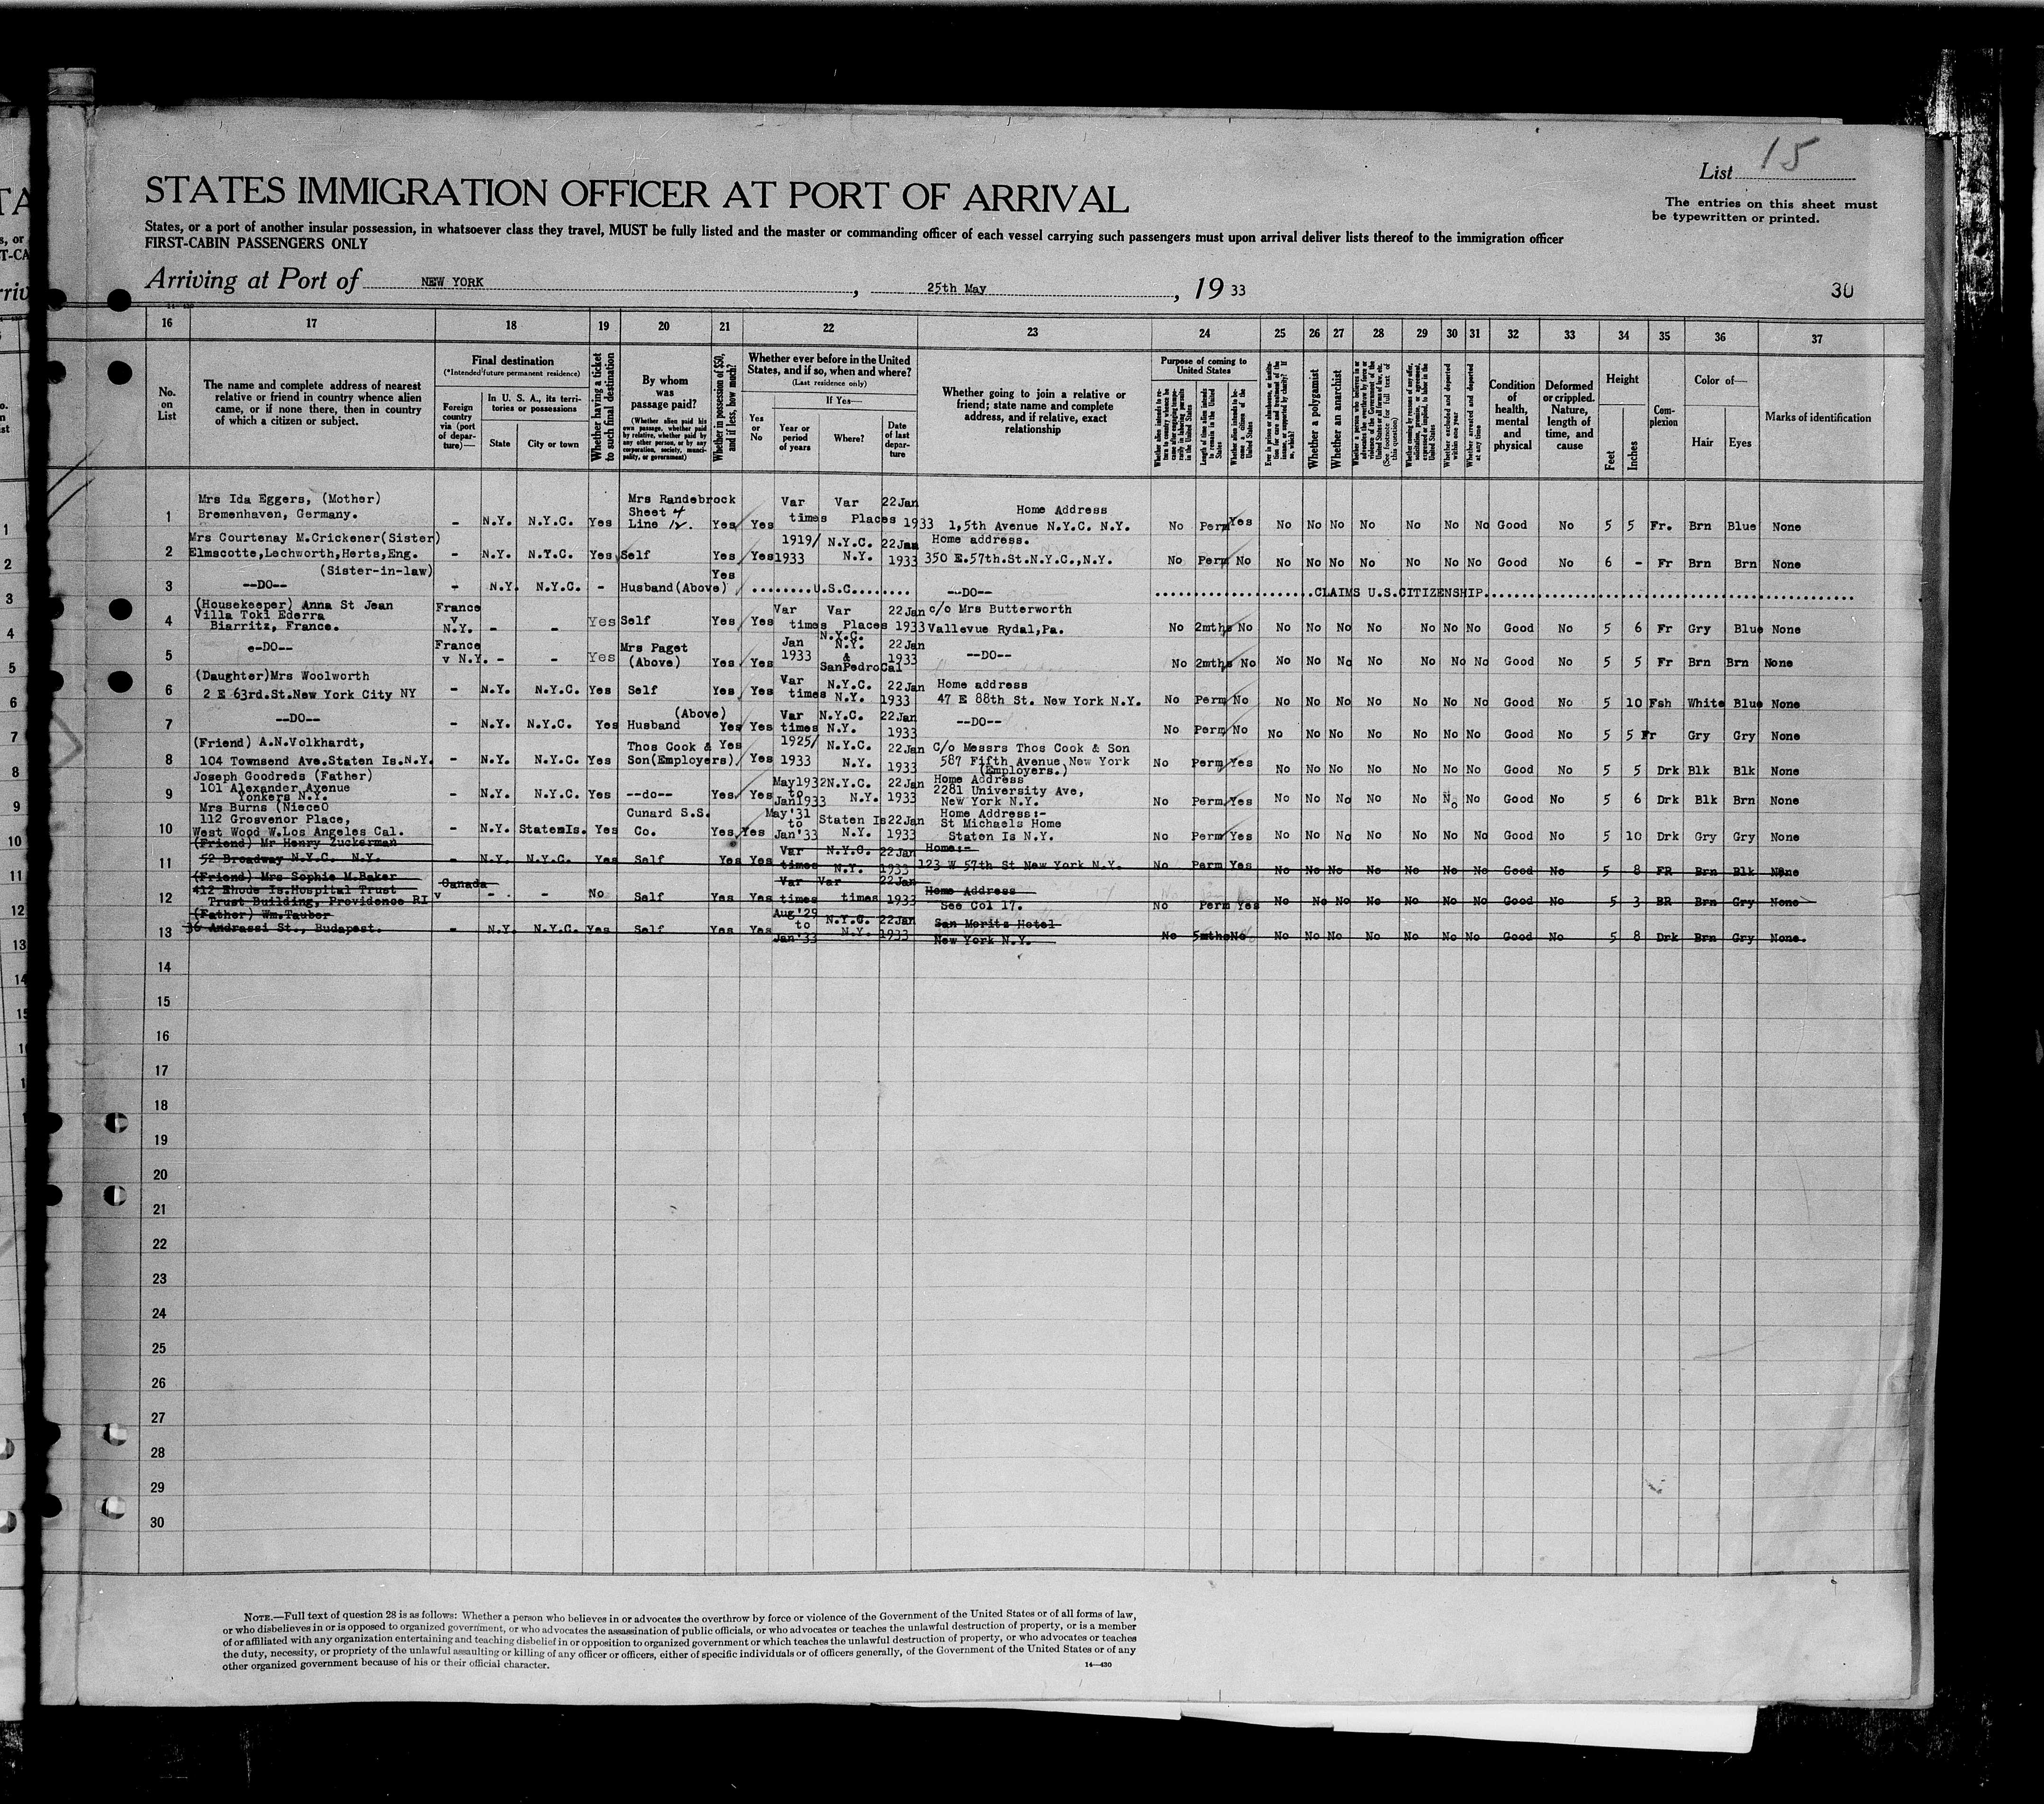 List 15
STATES IMMIGRATION OFFICER AT PORT OF ARRIVAL
The entries on this sheet must
be typewritten or printed.
States, or a port of another insular possession, in whatsoever class they travel, MUST be fully listed and the master or commanding officer of each vessel carrying such passengers must upon arrival deliver lists thereof to the immigration officer
FIRST-CABIN PASSENGERS ONLY
Arriving at Port of NEW YORK, 25th May, 19 33
30
16 17 18 19 20 21 22 23 24 25 26 27 28 29 30 31 32 33 34 35 36 37
No. on List
The name and complete address of nearest relative or friend in country whence alien came, or if none there, then in country of which a citizen or subject.
Final destination
(*Intended future permanent residence)
Foreign country via (port of departure)—
In U. S. A., its territories or possessions
State
City or town
Whether having a ticket to such final destination
By whom was passage paid?
(Whether alien paid his own passage, whether paid by relative, whether paid by any other person, or by any corporation, society, municipality, or government)
Whether in possession of $50, and if less, how much?
Whether ever before in the United States, and if so, when and where?
(Last residence only)
Yes or No
If Yes—
Year or period of years
Where?
Date of last departure
Whether going to join a relative or friend; state name and complete address, and if relative, exact relationship
Purpose of coming to United States
Length of time alien intends to remain in the United States
Whether alien intends to become a citizen of the United States
Whether a polygamist
Whether an anarchist
Whether excluded and deported within one year
Whether arrested and deported at any time
Condition of health, mental and physical
Deformed or crippled. Nature, length of time, and cause
Height
Feet
Inches
Complexion
Color of—
Hair
Eyes
Marks of identification
1 Mrs Ida Eggers, (Mother) Bremenhaven, Germany. - N.Y. N.Y.C. Yes Mrs Randebrock Sheet 4 Line 12. Yes Yes Var times Var Places 22Jan 1933 Home Address 1,5th Avenue N.Y.C. N.Y. No Perm Yes No No No No No No No Good No 5 5 Fr. Brn Blue None
2 Mrs Courtenay M.Crickener(Sister) Elmscotte,Lechworth,Herts,Eng. - N.Y. N.T.C. Yes Self Yes Yes 1919/1933 N.Y.C. N.Y. 22Jan 1933 Home address. 350 E.57th.St.N.Y.C.,N.Y. No Perm No No No No No No No No Good No 6 - Fr Brn Brn None
3 (Sister-in-law) --DO-- - N.Y. N.Y.C. - Husband(Above) Yes ........U.S.C........ --DO-- ....CLAIMS U.S.CITIZENSHIP....
4 (Housekeeper) Anna St Jean Villa Toki Ederra Biarritz, France. France v N.Y. - - Yes Self Yes Yes Var times Var Places 22Jan 1933 c/o Mrs Butterworth Vallevue Rydal,Pa. No 2mths No No No No No No No No Good No 5 6 Fr Gry Blue None
5 e-DO-- France v N.Y. - - Yes Mrs Paget (Above) Yes Yes Jan 1933 N.Y.C. N.Y. & SanPedroCal 22Jan 1933 --DO-- No 2mths No No No No No No No No Good No 5 5 Fr Brn Brn None
6 (Daughter)Mrs Woolworth 2 E 63rd.St.New York City NY - N.Y. N.Y.C. Yes Self Yes Yes Var times N.Y.C. N.Y. 22Jan 1933 Home address 47 E 88th St. New York N.Y. No Perm No No No No No No No No Good No 5 10 Fsh White Blue None
7 --DO-- - N.Y. N.Y.C. Yes (Above) Husband Yes Yes Var times N.Y.C. N.Y. 22Jan 1933 --DO-- No Perm No No No No No No No No Good No 5 5 Fr Gry Gry None
8 (Friend) A.N.Volkhardt, 104 Townsend Ave.Staten Is.N.Y. - N.Y. N.Y.C. Yes Thos Cook & Son(Employers) Yes Yes 1925/1933 N.Y.C. N.Y. 22Jan 1933 C/o Messrs Thos Cook & Son 587 Fifth Avenue New York (Employers.) No Perm Yes No No No No No No No Good No 5 5 Drk Blk Blk None
9 Joseph Goodreds (Father) 101 Alexander Avenue Yonkers N.Y. - N.Y. N.Y.C. Yes --do-- Yes Yes May1932 to Jan1933 N.Y.C. N.Y. 22Jan 1933 Home Address 2281 University Ave, New York N.Y. No Perm Yes No No No No No No No Good No 5 6 Drk Blk Brn None
10 Mrs Burns (NieceO 112 Grosvenor Place, West Wood W.Los Angeles Cal. - N.Y. StatenIs. Yes Cunard S.S. Co. Yes Yes May'31 to Jan'33 Staten Is N.Y. 22Jan 1933 Home Address:- St Michaels Home Staten Is N.Y. No Perm Yes No No No No No No No Good No 5 10 Drk Gry Gry None
11 (Friend) Mr Henry Zuckerman 52 Broadway N.Y.C. N.Y. - N.Y. N.Y.C. Yes Self Yes Yes Var times N.Y.C. N.Y. 22Jan 1933 Home:- 123 W 57th St New York N.Y. No Perm Yes No No No No No No No Good No 5 8 FR Brn Blk None
12 (Friend) Mrs Sophie M.Baker 412 Rhode Is.Hospital Trust Trust Building, Providence RI Canada v - - No Self Yes Yes Var times Var times 22Jan 1933 Home Address See Col 17. No Perm Yes No No No No No No No Good No 5 3 BR Brn Gry None
13 (Father) Wm.Tauber 36 Andrassi St., Budapest. - N.Y. N.Y.C. Yes Self Yes Yes Aug'29 to Jan'33 N.Y.C. N.Y. 22Jan 1933 San Moritz Hotel New York N.Y. No 5mths No No No No No No No No Good No 5 8 Drk Brn Gry None.
14
15
16
17
18
19
20
21
22
23
24
25
26
27
28
29
30
NOTE.—Full text of question 28 is as follows: Whether a person who believes in or advocates the overthrow by force or violence of the Government of the United States or of all forms of law,
or who disbelieves in or is opposed to organized government, or who advocates the assassination of public officials, or who advocates or teaches the unlawful destruction of property, or is a member
of or affiliated with any organization entertaining and teaching disbelief in or opposition to organized government or which teaches the unlawful destruction of property, or who advocates or teaches
the duty, necessity, or propriety of the unlawful assaulting or killing of any officer or officers, either of specific individuals or of officers generally, of the Government of the United States or of any
other organized government because of his or their official character.
14—430